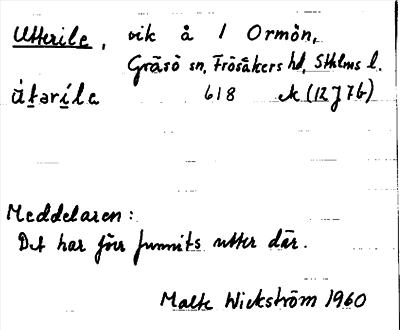 Utterile, vik å / Ormön,
Gräsö sn, Frösåkers hd, Sthlms l.
útəríla 618 (12J7b)
Meddelaren:
Det har förr funnits utter där.
Malte Wickström 1960